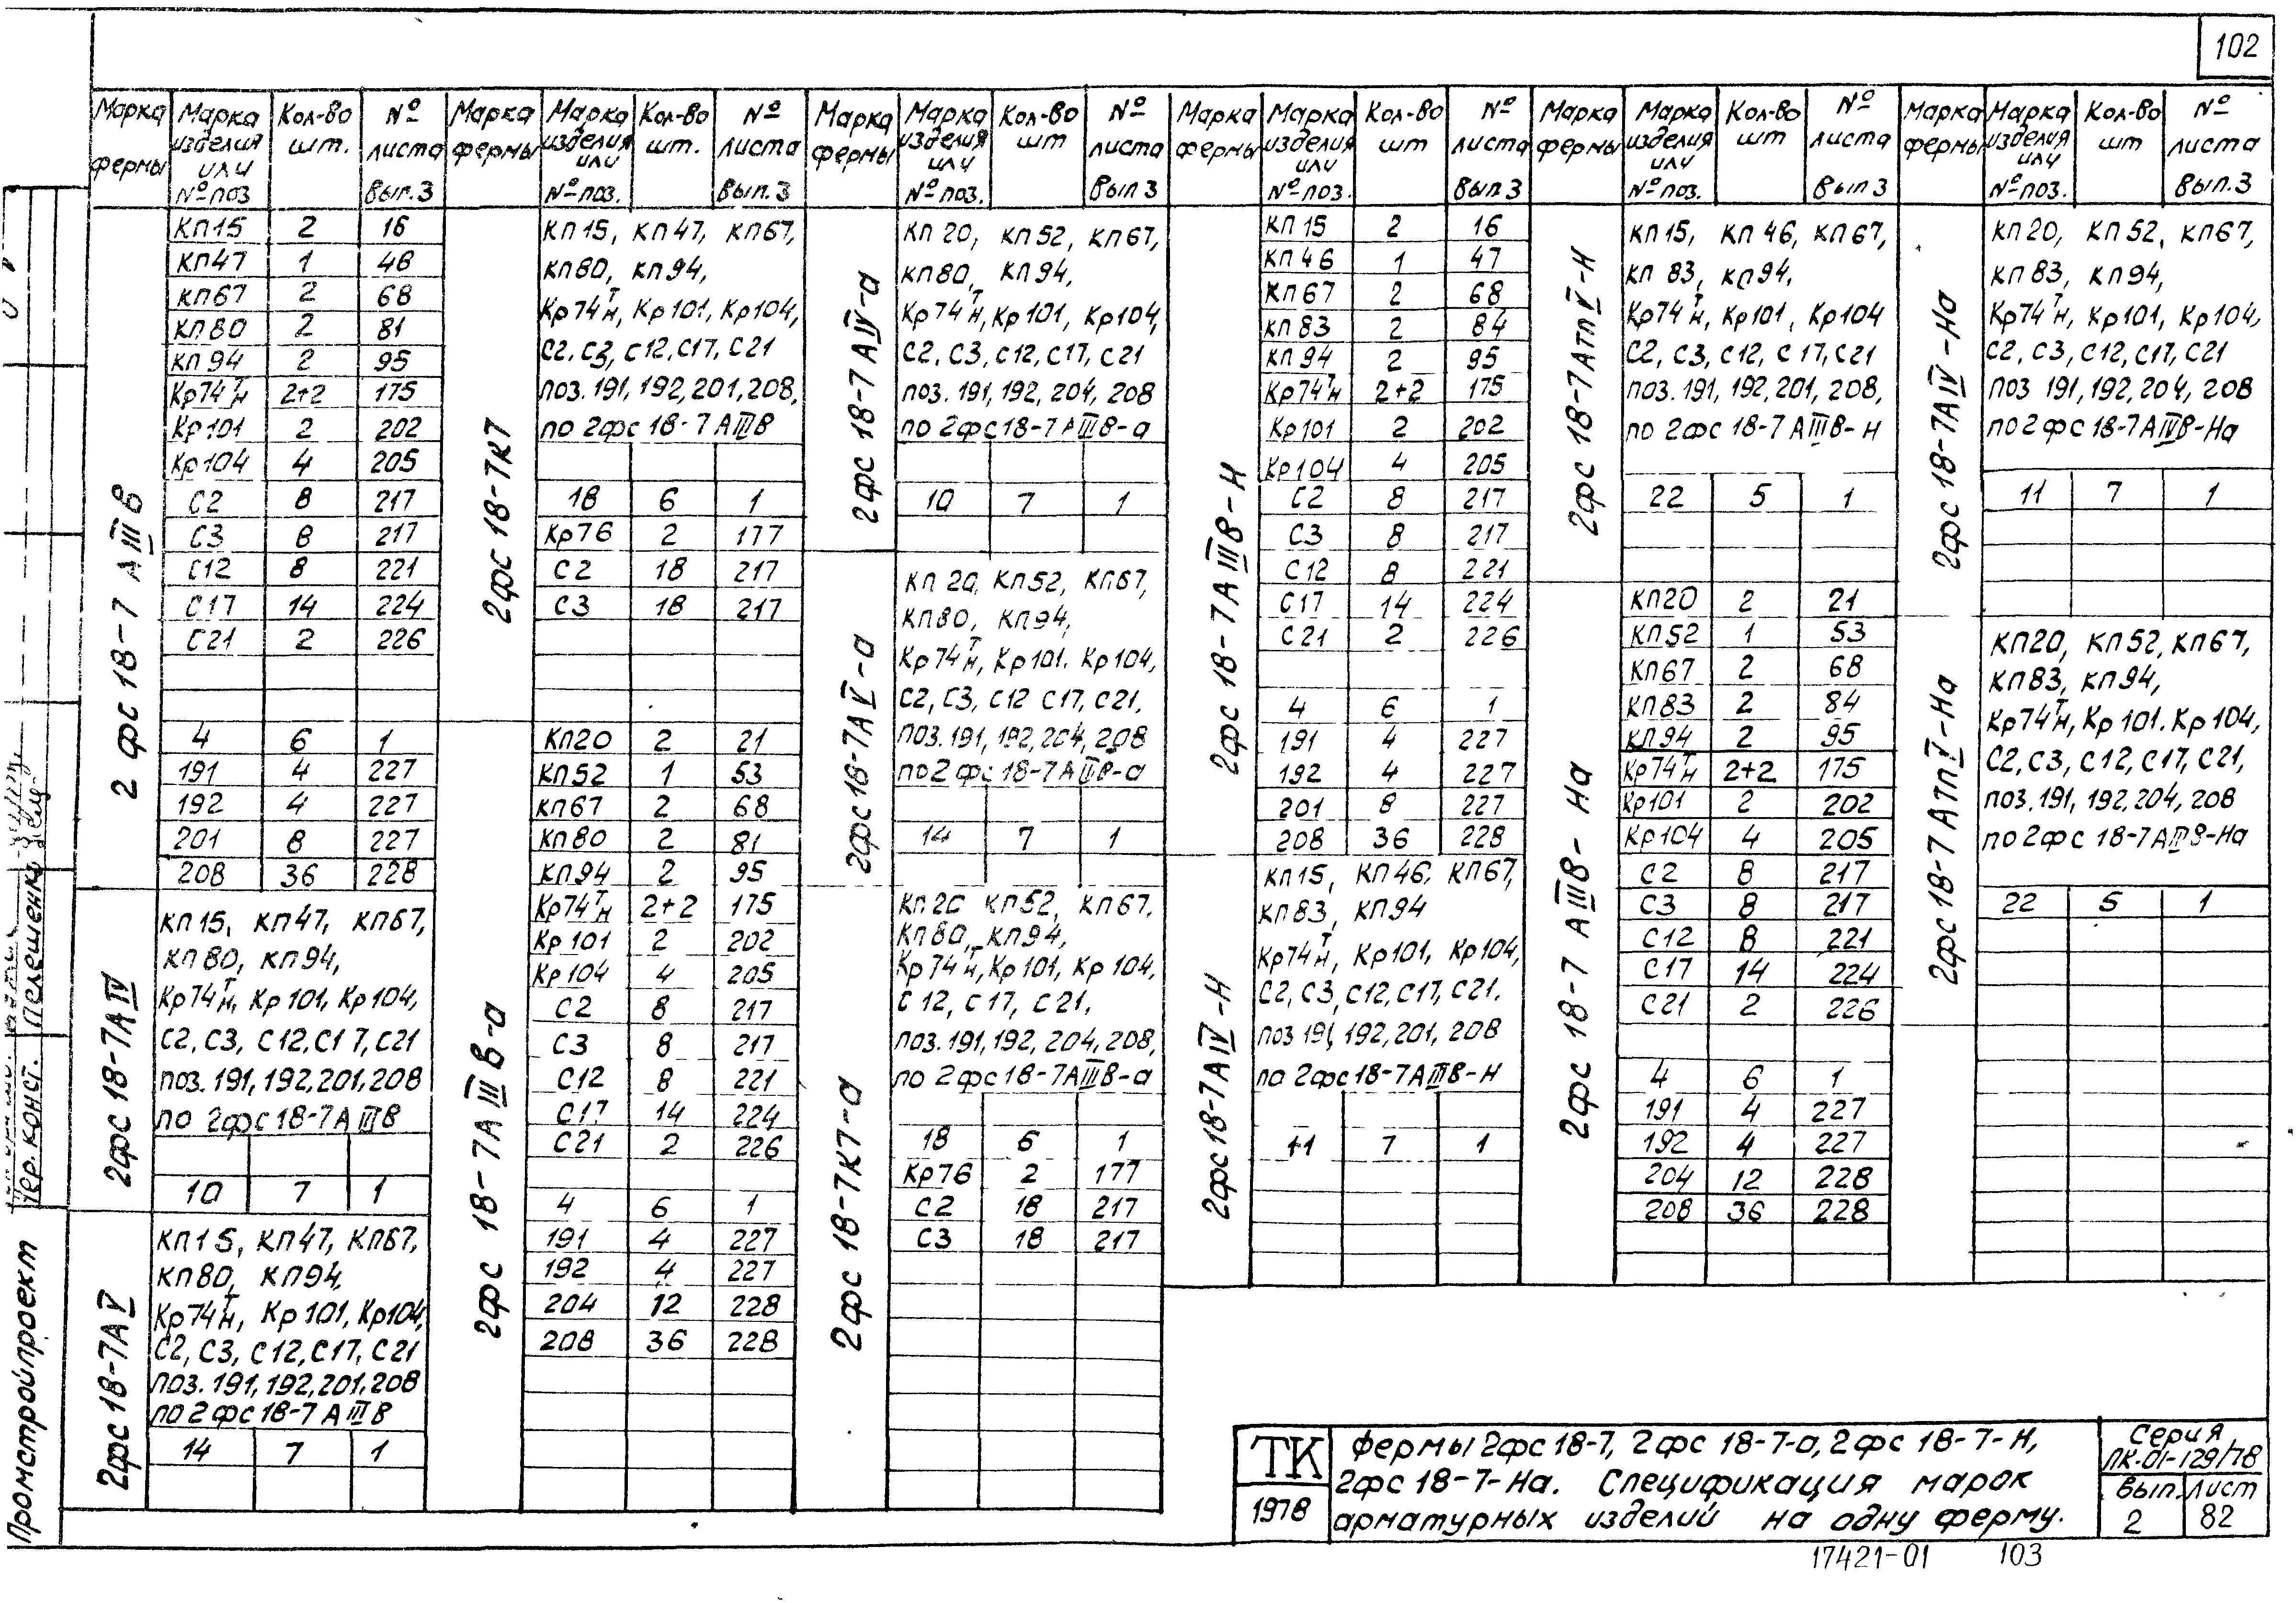 102
Марка фермы | Марка изделия или № поз | Кол-во шт. | № листа Вып.3
2фс 18-7 АIIIв
КП15 2 16
КП47 1 48
КП67 2 68
КП80 2 81
КП94 2 95
Кр74тн 2+2 175
Кр101 2 202
Кр104 4 205
С2 8 217
С3 8 217
С12 8 221
С17 14 224
С21 2 226
4 6 1
191 4 227
192 4 227
201 8 227
208 36 228
2фс 18-7АIV
КП15, КП47, КП67,
КП80, КП94,
Кр74тн, Кр101, Кр104,
С2, С3, С12, С17, С21
поз. 191, 192, 201, 208
по 2фс 18-7АIIIв
10 7 1
2фс 18-7АV
КП15, КП47, КП67,
КП80, КП94,
Кр74тн, Кр101, Кр104,
С2, С3, С12, С17, С21
поз. 191, 192, 201, 208
по 2фс 18-7АIIIв
14 7 1
Марка фермы | Марка изделия или № поз. | Кол-во шт. | № листа Вып.3
2фс 18-7К7
КП15, КП47, КП67,
КП80, КП94,
Кр74тн, Кр101, Кр104,
С2, С3, С12, С17, С21
поз. 191, 192, 201, 208,
по 2фс 18-7АIIIв
18 6 1
Кр76 2 177
С2 18 217
С3 18 217
2фс 18-7АIIIв-а
КП20 2 21
КП52 1 53
КП67 2 68
КП80 2 81
КП94 2 95
Кр74тн 2+2 175
Кр101 2 202
Кр104 4 205
С2 8 217
С3 8 217
С12 8 221
С17 14 224
С21 2 226
4 6 1
191 4 227
192 4 227
204 12 228
208 36 228
Марка фермы | Марка изделия или № поз. | Кол-во шт | № листа Вып 3
2фс 18-7АIV-а
КП20, КП52, КП67,
КП80, КП94,
Кр74тн, Кр101, Кр104,
С2, С3, С12, С17, С21
поз. 191, 192, 204, 208
по 2фс 18-7АIIIв-а
10 7 1
2фс 18-7АV-а
КП20, КП52, КП67,
КП80, КП94,
Кр74тн, Кр101. Кр104,
С2, С3, С12 С17, С21,
поз. 191, 192, 204, 208
по 2фс 18-7АIIIв-а
14 7 1
2фс 18-7К7-а
КП20 КП52, КП67.
КП80, КП94,
Кр74тн, Кр101, Кр104,
С12, С17, С21,
поз. 191, 192, 204, 208,
по 2фс 18-7АIIIв-а
18 6 1
Кр76 2 177
С2 18 217
С3 18 217
Марка фермы | Марка изделия или № поз. | Кол-во шт | № листа Вып 3
2фс 18-7АIIIв-Н
КП15 2 16
КП46 1 47
КП67 2 68
КП83 2 84
КП94 2 95
Кр74тн 2+2 175
Кр101 2 202
Кр104 4 205
С2 8 217
С3 8 217
С12 8 221
С17 14 224
С21 2 226
4 6 1
191 4 227
192 4 227
201 8 227
208 36 228
2фс 18-7АIV-Н
КП15, КП46, КП67,
КП83, КП94
Кр74тн, Кр101, Кр104,
С2, С3, С12, С17, С21.
поз 191, 192, 201, 208
по 2фс 18-7АIIIв-Н
11 7 1
Марка фермы | Марка изделия или № поз. | Кол-во шт | № листа Вып 3
2фс 18-7АтпV-Н
КП15, КП46, КП67,
КП83, КП94,
Кр74тн, Кр101, Кр104
С2, С3, С12, С17, С21
поз. 191, 192, 201, 208,
по 2фс 18-7АIIIв-Н
22 5 1
2фс 18-7АIIIв-На
КП20 2 21
КП52 1 53
КП67 2 68
КП83 2 84
КП94 2 95
Кр74тн 2+2 175
Кр101 2 202
Кр104 4 205
С2 8 217
С3 8 217
С12 8 221
С17 14 224
С21 2 226
4 6 1
191 4 227
192 4 227
204 12 228
208 36 228
Марка фермы | Марка изделия или № поз. | Кол-во шт | № листа Вып.3
2фс 18-7АIV-На
КП20, КП52, КП67,
КП83, КП94,
Кр74тн, Кр101, Кр104,
С2, С3, С12, С17, С21
поз 191, 192, 204, 208
по 2фс 18-7АIVв-На
11 7 1
2фс 18-7АтпV-На
КП20, КП52, КП67,
КП83, КП94,
Кр74тн, Кр101. Кр104,
С2, С3, С12, С17, С21,
поз. 191, 192, 204, 208
по 2фс 18-7АIIIв-На
22 5 1
Пелешенко
Гер. конст.
Промстройпроект
ТК
1978
Фермы 2фс 18-7, 2фс 18-7-а, 2фс 18-7-Н,
2фс 18-7-На. Спецификация марок
арматурных изделий на одну ферму.
Серия
ПК-01-129/78
Вып. Лист
2 82
17421-01 103